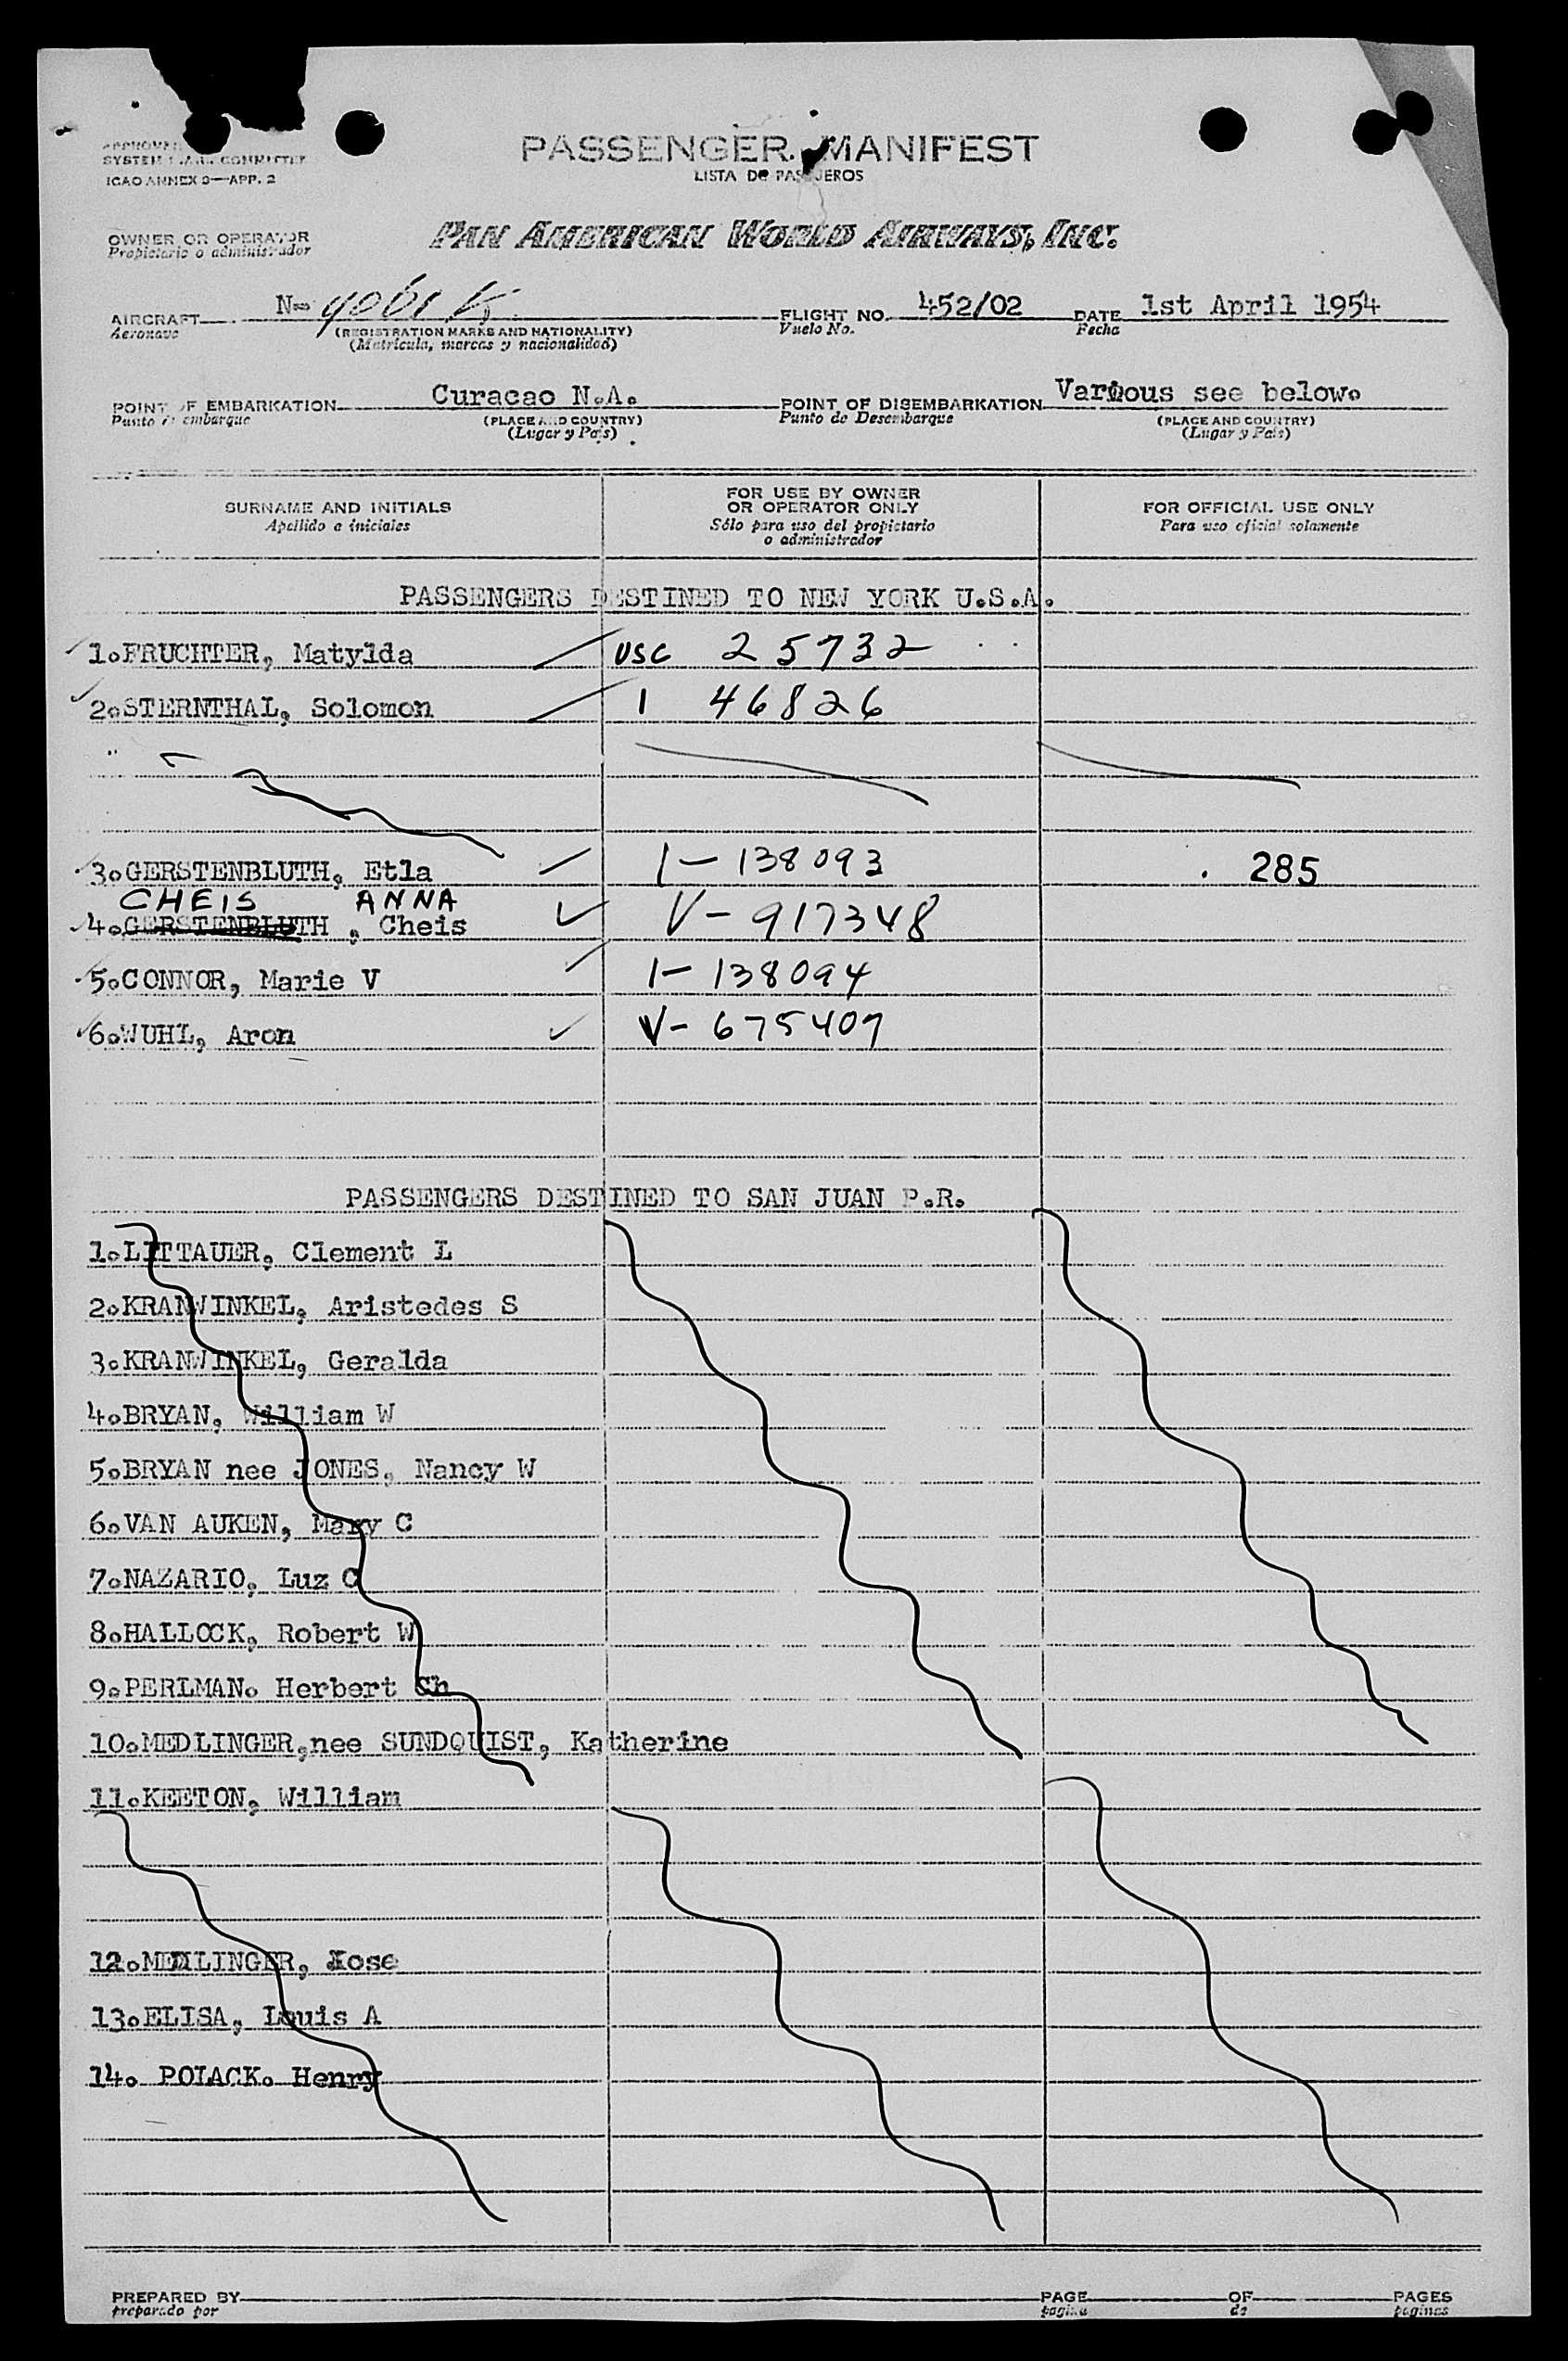 SYSTEM
COMMITTEE
ICAO ANNEX 9—APP. 2
PASSENGER MANIFEST
LISTA DE PASAJEROS
OWNER OR OPERATOR
Propietario o administrador
PAN AMERICAN WORLD AIRWAYS, INC.
AIRCRAFT N-
Aeronave
(REGISTRATION MARKS AND NATIONALITY)
(Matrícula, marcas y nacionalidad)
FLIGHT NO. 452/02
Vuelo No.
DATE 1st April 1954
Fecha
POINT OF EMBARKATION Curacao N.A.
Punto de embarque
(PLACE AND COUNTRY)
(Lugar y País)
POINT OF DISEMBARKATION Various see below.
Punto de Desembarque
(PLACE AND COUNTRY)
(Lugar y País)
SURNAME AND INITIALS
Apellido e iniciales
FOR USE BY OWNER
OR OPERATOR ONLY
Sólo para uso del propietario
o administrador
FOR OFFICIAL USE ONLY
Para uso oficial solamente
PASSENGERS DESTINED TO NEW YORK U.S.A.
1.FRUCHTER, Matylda USC 25732
2.STERNTHAL, Solomon 1 46826
3.GERSTENBLUTH, Etla 1-138093 285
CHEIS ANNA
4.GERSTENBLUTH , Cheis V-917348
5.CONNOR, Marie V 1-138094
6.WUHL, Aron V-675407
PASSENGERS DESTINED TO SAN JUAN P.R.
1.LITTAUER, Clement L
2.KRANWINKEL, Aristedes S
3.KRANWINKEL, Geralda
4.BRYAN, William W
5.BRYAN nee JONES, Nancy W
6.VAN AUKEN, Mary C
7.NAZARIO, Luz C
8.HALLOCK, Robert W
9.PERLMAN. Herbert Ch
10.MEDLINGER,nee SUNDQUIST, Katherine
11.KEETON, William
12.MEDLINGER, Jose
13.ELISA, Louis A
14. POLACK. Henry
PREPARED BY
preparado por
PAGE OF PAGES
pagina de paginas